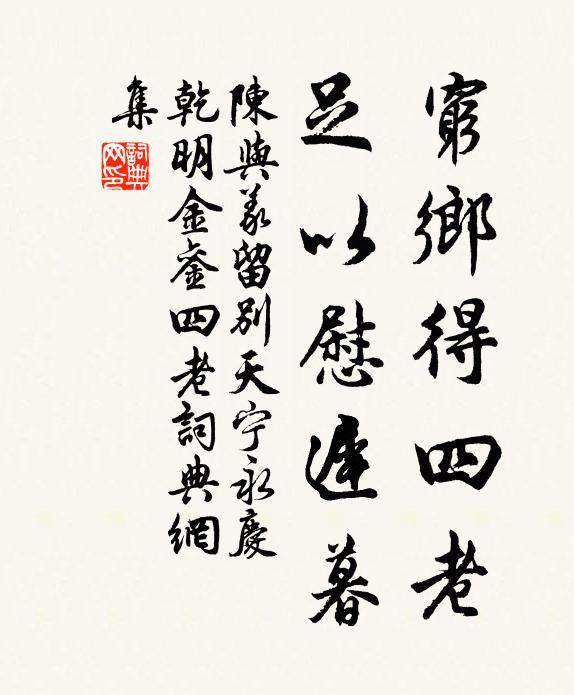 窮鄉得四老
足以慰遲暮
陳與義留別天宁永慶
乾明金銮四老詞典網
集
詞典
网印